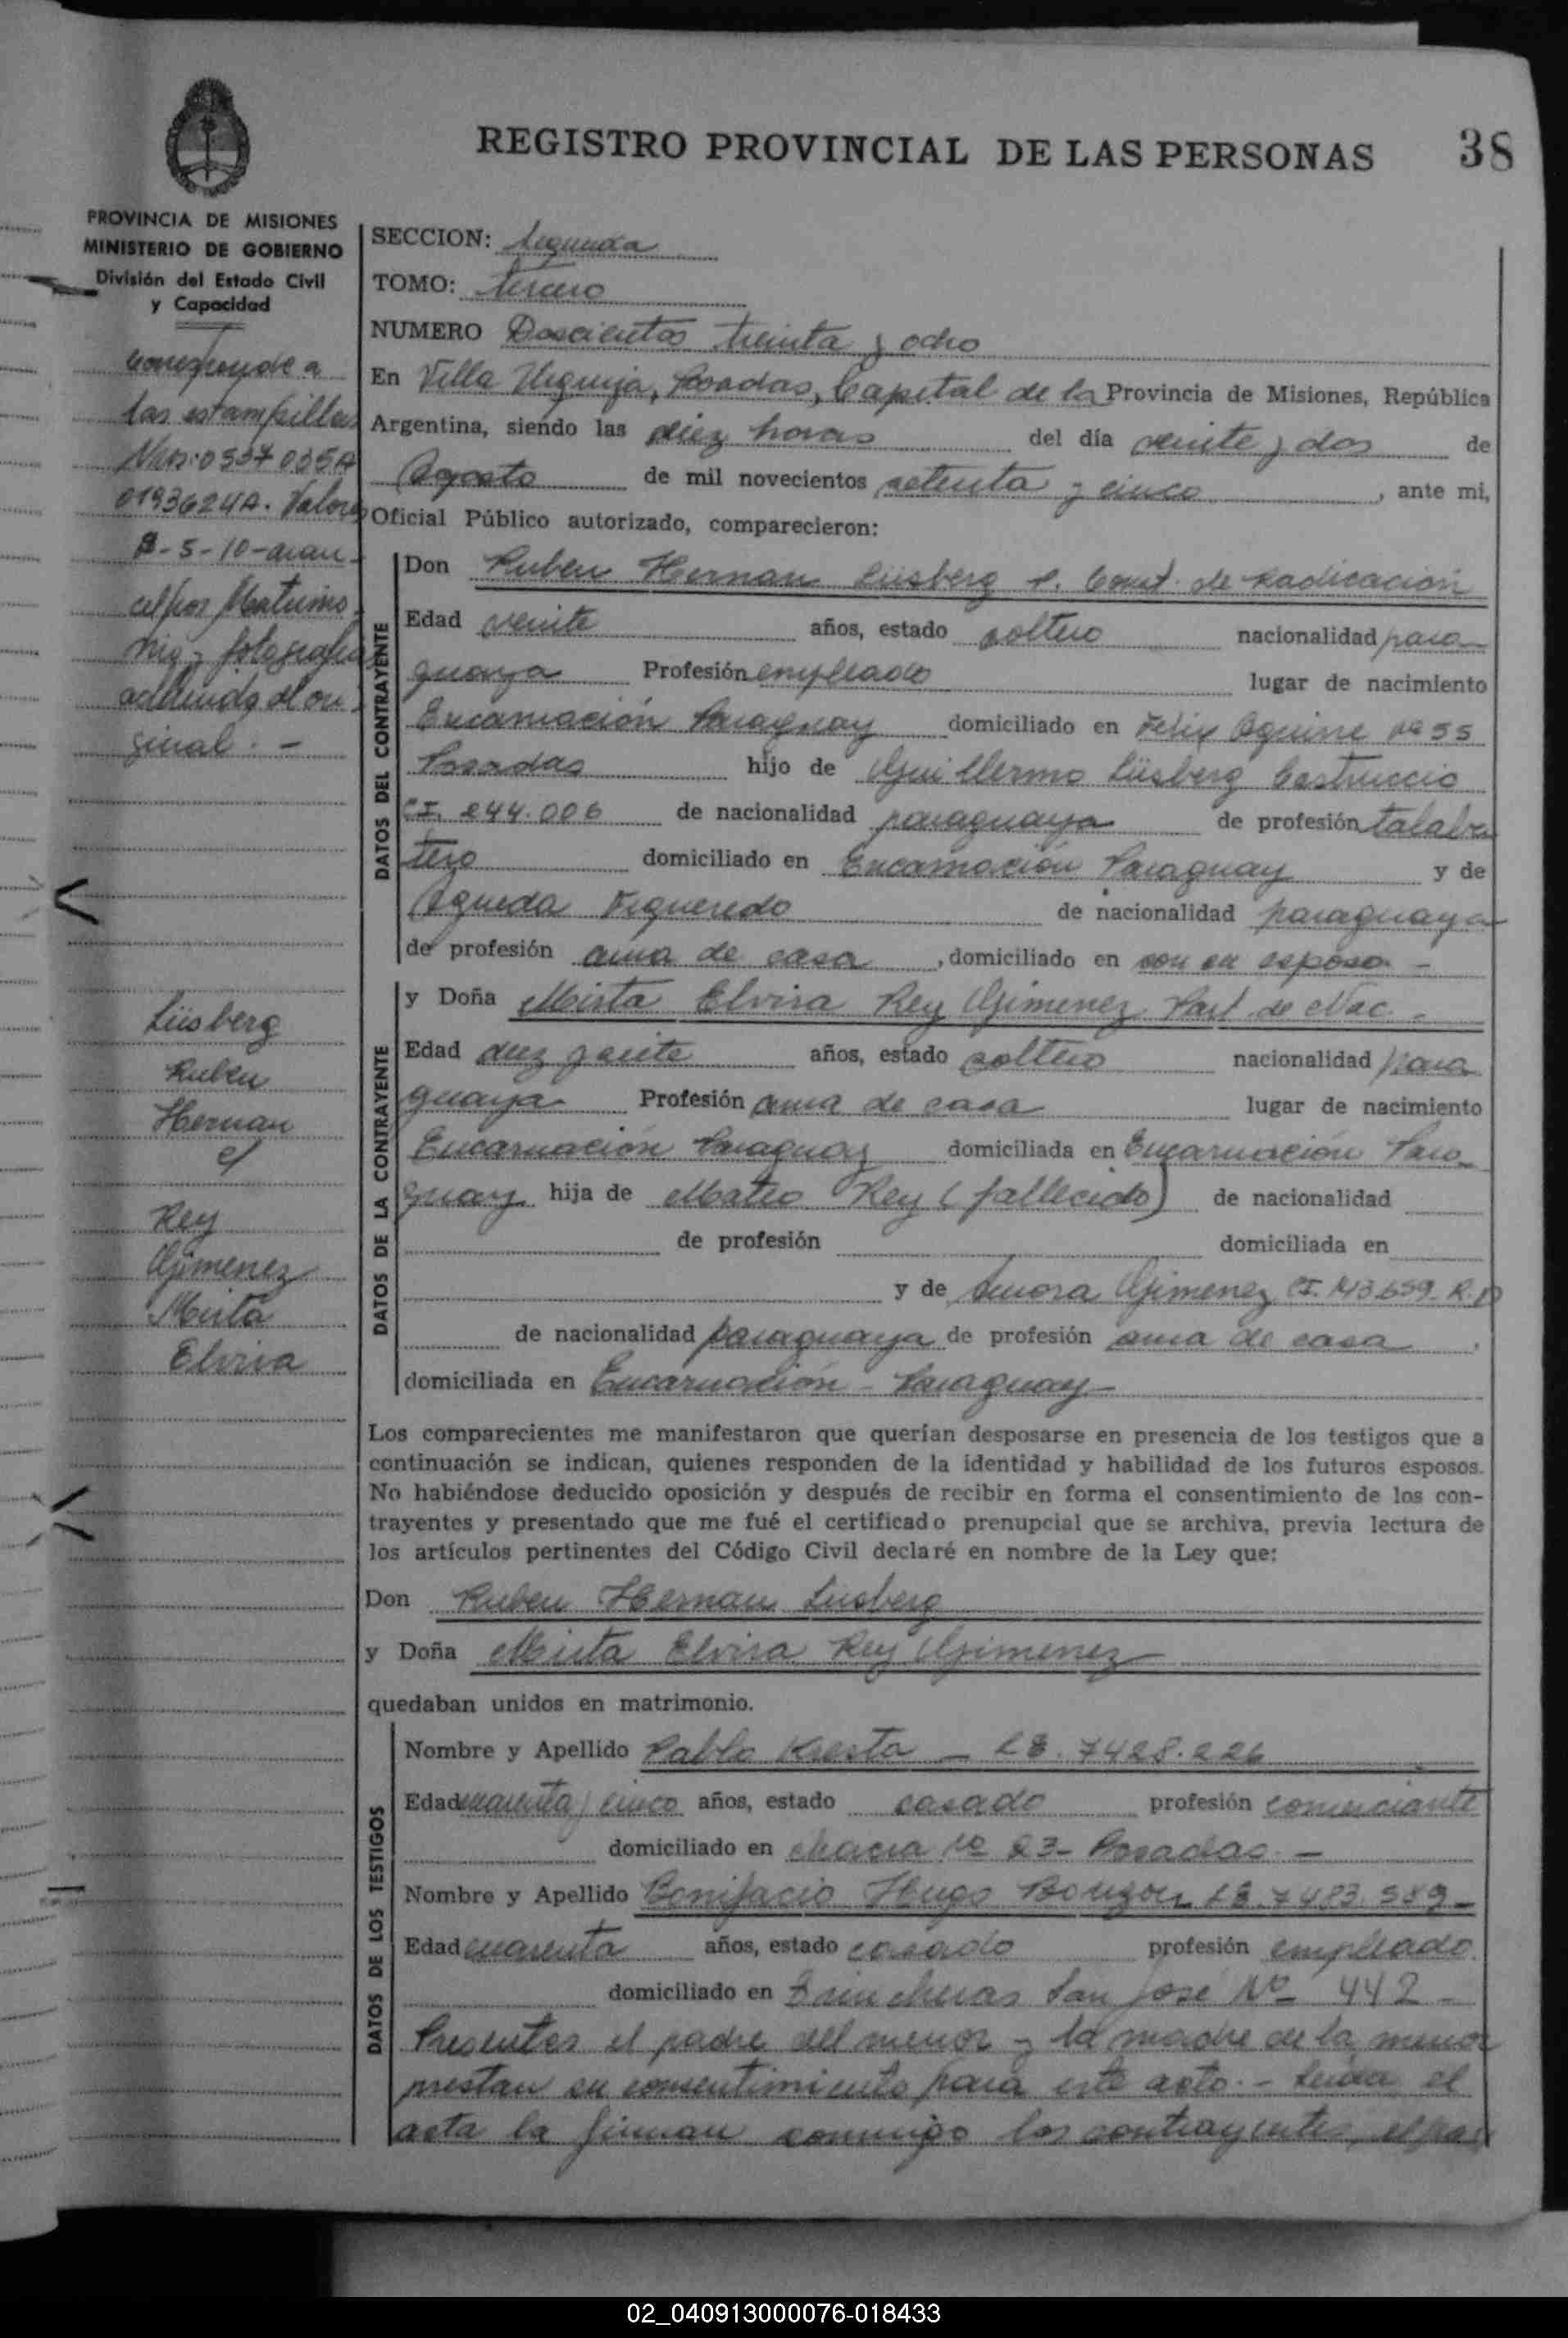 REGISTRO PROVINCIAL DE LAS PERSONAS 38
PROVINCIA DE MISIONES
MINISTERIO DE GOBIERNO
División del Estado Civil
y Capacidad
corresponde a
las estampillas
Nros: 0537035A
0193624A. Valores
$-5-10-aran-
cel por Matrimo-
nio y fotografia
adherida al ori-
ginal. -
Lüsberg
Ruben
Hernan
c/
Rey
Gimenez
Mirta
Elvira
SECCION: Segunda
TOMO: tercero
NUMERO Doscientos treinta y ocho
En Villa Urquiza, Posadas, Capital de la Provincia de Misiones, República
Argentina, siendo las diez horas del día veinte y dos de
Agosto de mil novecientos setenta y cinco, ante mi,
Oficial Público autorizado, comparecieron:
DATOS DEL CONTRAYENTE
Don Ruben Hernan Lüsberg c. Const. de Radicación
Edad veinte años, estado soltero nacionalidad para-
guaya Profesión empleado lugar de nacimiento
Encarnación Paraguay domiciliado en Felix Aguirre Nº 55
Posadas hijo de Guillermo Lüsberg Castruccio
CI. 244.006 de nacionalidad paraguaya de profesión talabar
tero domiciliado en Encarnación Paraguay y de
Agueda Figueredo de nacionalidad paraguaya
de profesión ama de casa, domiciliado en con su esposo -
DATOS DE LA CONTRAYENTE
y Doña Mirta Elvira Rey Gimenez Part. de Nac. -
Edad diez y siete años, estado soltera nacionalidad para
guaya Profesión ama de casa lugar de nacimiento
Encarnación Paraguay domiciliada en Encarnación Para-
guay hija de Mateo Rey (fallecido) de nacionalidad
de profesión domiciliada en
y de Gimenez CI. 143.659. R.P
de nacionalidad paraguaya de profesión ama de casa
domiciliada en Encarnación - Paraguay -
Los comparecientes me manifestaron que querían desposarse en presencia de los testigos que a
continuación se indican, quienes responden de la identidad y habilidad de los futuros esposos.
No habiéndose deducido oposición y después de recibir en forma el consentimiento de los con-
trayentes y presentado que me fué el certificado prenupcial que se archiva, previa lectura de
los artículos pertinentes del Código Civil declaré en nombre de la Ley que:
Don Ruben Hernan Lusberg
y Doña Mirta Elvira Rey Gimenez
quedaban unidos en matrimonio.
DATOS DE LOS TESTIGOS
Nombre y Apellido Pablo - LE. 7428.226
Edad cuarenta y cinco años, estado casado profesión comerciante
domiciliado en chacra Nº 23- Posadas. -
Nombre y Apellido Bonifacio Hugo Bouzon LE. 7483.589 -
Edad cuarenta años, estado casado profesión empleado
domiciliado en Trincheras San José Nº 442 -
Presentes el padre del menor y la madre de la menor
prestan su consentimiento para este acto. - Leida el
acta la firman conmigo los contrayentes, el pa-
02_040913000076-018433